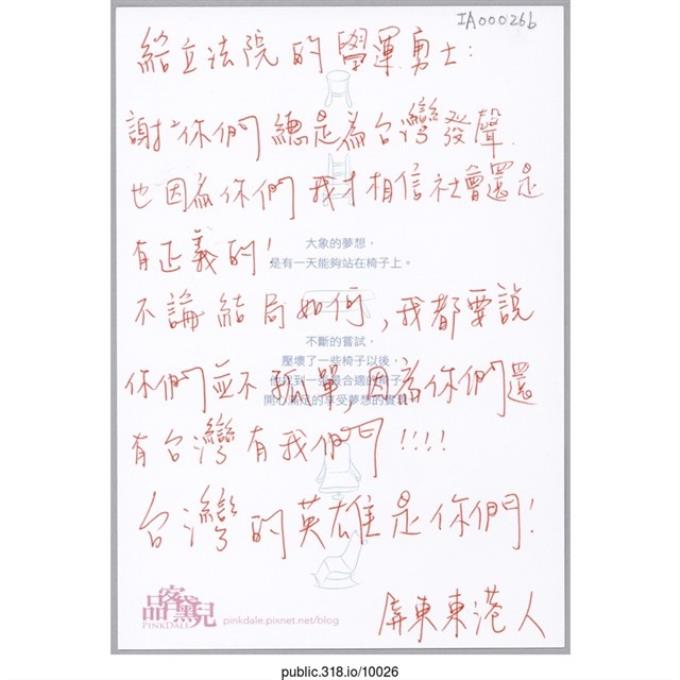 IA00026b
給立法院的學運勇士：
謝〃你們總是為台灣發聲.
也因為你們我才相信社會還是
有正義的！
大象的夢想，
是有一天能夠站在椅子上。
不論結局如何，我都要說
不斷的嘗試，
壓壞了一些椅子以後，
你們並不孤單，因為你們還
開心滿足的享受夢想的實現
有台灣有我們！！！！
台灣的英雄是你們！
屏東東港人
品客黛兒
PINKDALE
pinkdale.pixnet.net/blog
public.318.io/10026